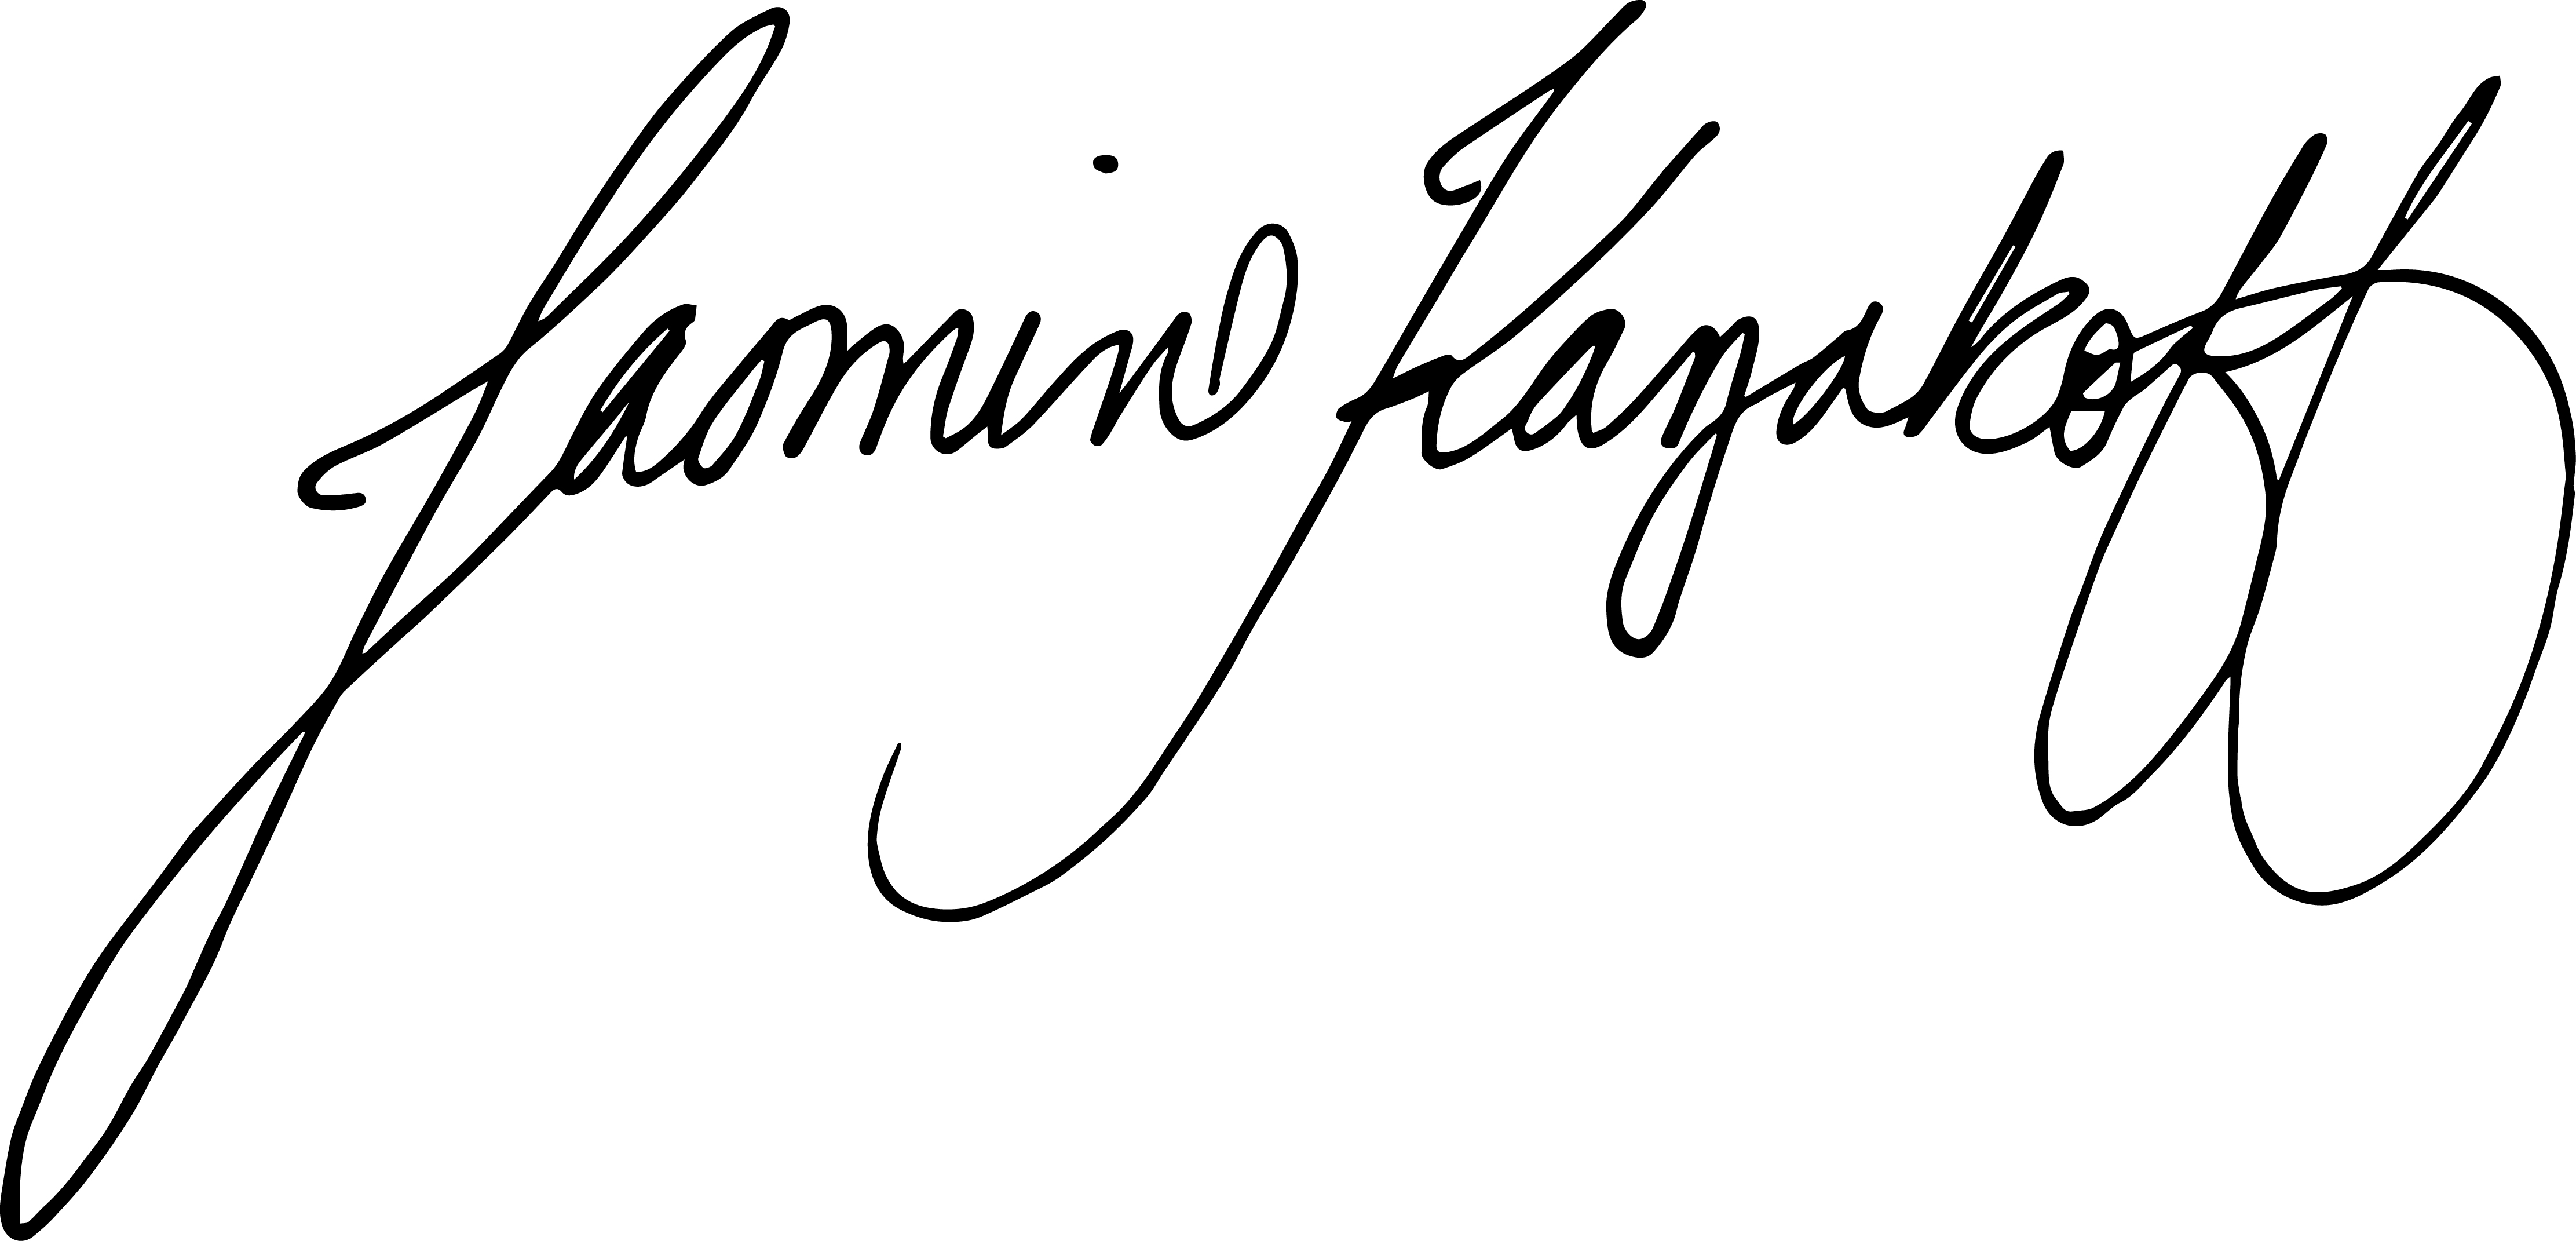 Jasmin Kayakoff